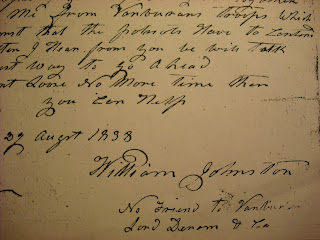 Me from Vanburans troops Which
that the have to
I Hear from you be will talk
Way to go A head
Loose No More time then
you Cen Help
29 Augst 1838
William Johnston
No Friend to Vanburan
Lord Denam & Co